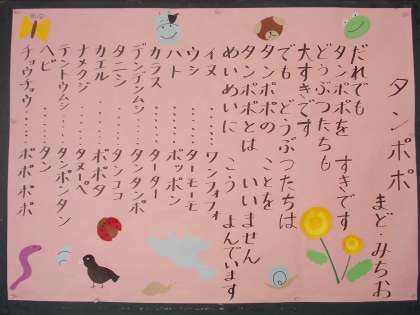 タンポポ
まど・みちお
だれでも
タンポポを すきです
どうぶつたちも
大すきです
でも どうぶつたちは
タンポポの ことを
タンポポとは いいません
めいめいに こう よんでいます
イヌ……ワンフォフォ
ウシ……ターモーモ
ハト……ポッポン
カラス……ターター
デンデンムシ……タンタンポ
タニシ……タンココ
カエル……ポポタ
ナメクジ……タヌーペ
テントウムシ……タンポンタン
ヘビ……タン
チョウチョウ……ポポポポ